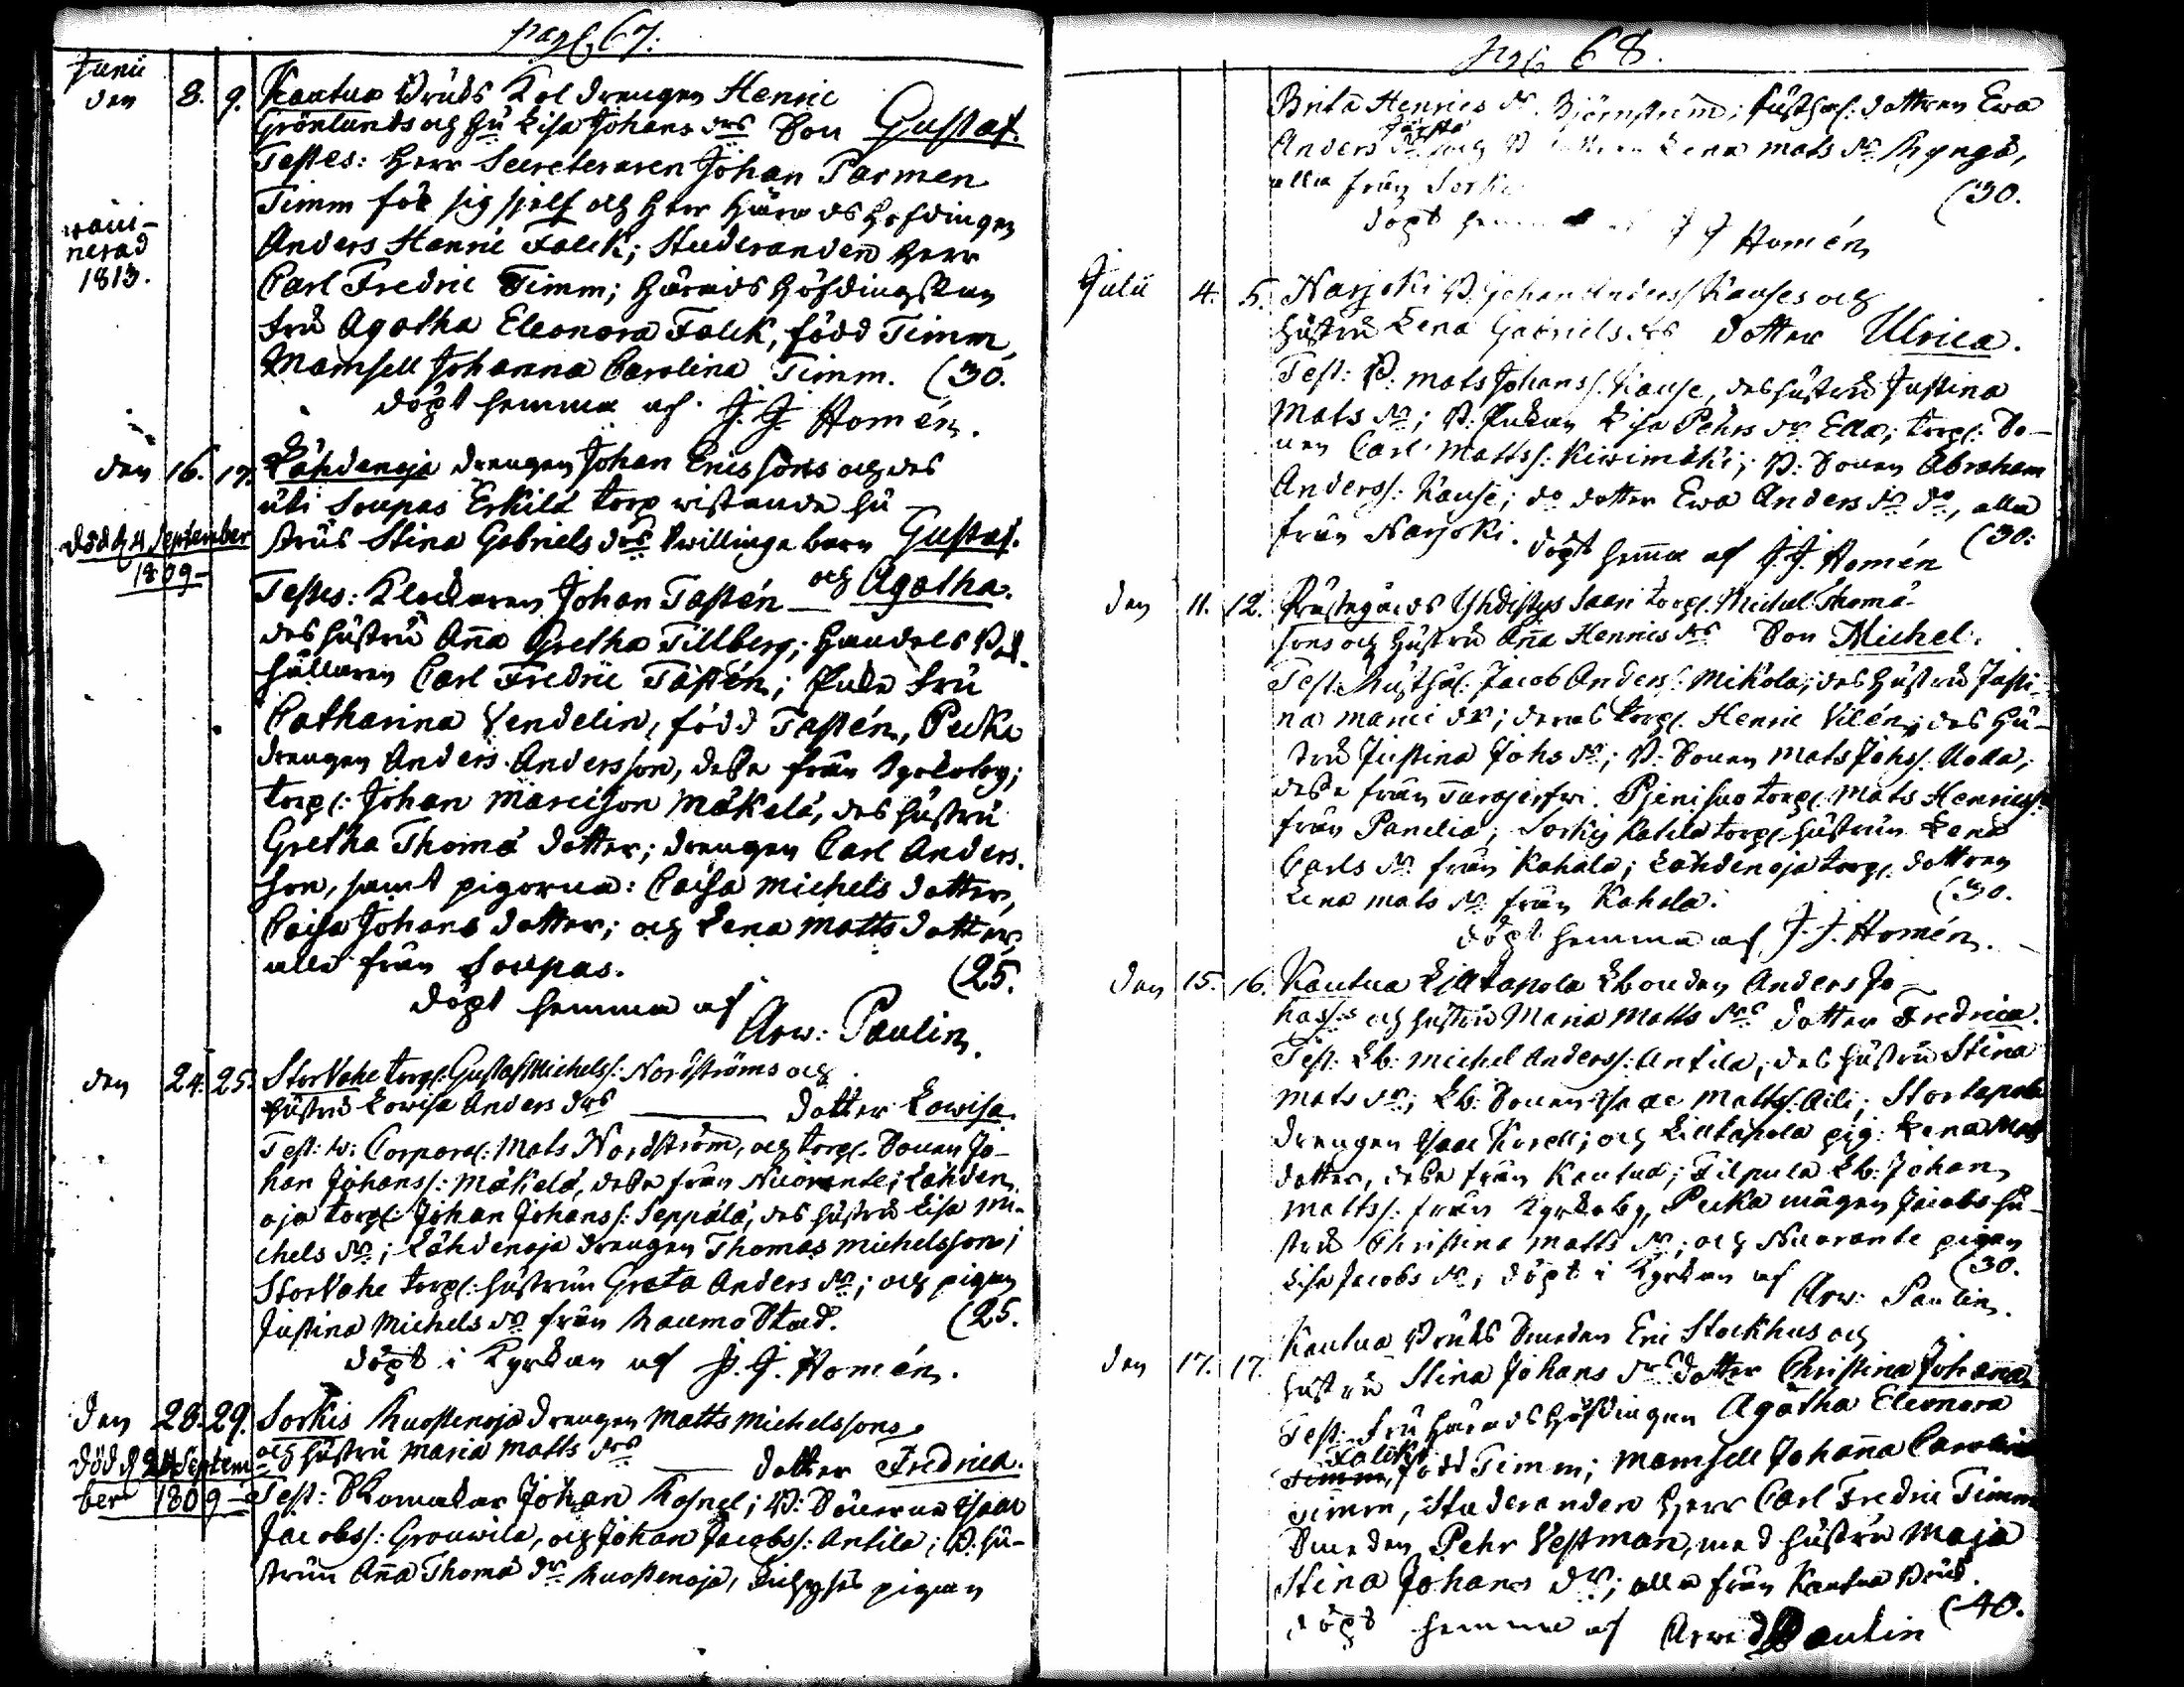 pag. 67:
Junii
den 8. 9. Kautua Bruks Kol drengen Henric
Grönlunds och Hu Lisa Johans drs Son Gustaf.
Testes: Herr Secreteraren Johan Parmen
Timm för sig sjelf och Herr Härads Höfdingen
vacci-
nerad
1813.
Anders Henric Falck; Studeranden Herr
Carl Fredric Timm; Härads Höfdingskan
Fru Agatha Eleonora Falck, född Timm,
Mamsell Johanna Carolina Timm. (30.
döpt hemma af J. J. Homén.
den 16. 17. Lähdenoja drengen Johan Ericssons och des
uti Soupas Erkilä torp vistande hu-
död d 4 September
1809
strus Stina Gabriels drs tvillinge barn Gustaf.
och Agatha.
Testes: Klockaren Johan Tastén
des hustru Aña Gretha Tillberg; Handels Bok-
hållaren Carl Fredric Tastén; Enke Fru
Catharina Vendelin, född Tastén, Pecka
drengen Anders Andersson, desse från Kyrkoby;
torp: Johan Marcison Mäkelä, des hustru
Gretha Thomä dotter; drengen Carl Anders-
son, samt pigorna: Caisa Michels dotter,
Caisa Johans dotter; och Lena Matts dotter,
alla från Soupas. (25.
döpt hemma af
Arw: Paulin.
den 24. 25. StorVahe torp: Gustaf Michelss: Nordströms och
hustru Lowisa Anders drs dotter Lowisa.
Test: w: Corporal: Mats Nordström, och torp: Sonen Jo-
han Johanss: Mäkelä, desse från Nuorante; Lähden-
oja torp: Johan Johanss: Seppälä, des hustru Lisa Mi-
chels dr; Lähdenoja drengen Thomas Michelsson;
StorVahe torp: hustrun Greta Anders dr; och pigan
Justina Michels dr från Raumo Stad. (25.
döpt i Kyrkan af J. J. Homén.
den 28. 29. Sorkis Ruostenoja drengen Matts Michelssons
och hustru Maria Matts drs dotter Fredrica.
död d 24 Septem-
ber 1809
Test: Skomakar Johan Rosnel; B: Sönerna Isaac
Jacobss: Grouwila, och Johan Jacobss: Antila; B: hu-
strun Aña Thomä dr Ruostenoja, pigan
pag. 68.
Brita Henrics dr Björnström; husthål: dottren Ewa
Anders dr och Lena Mats dr Ryngö,
alla från Sorkis (30.
döpt hemma af J J Homén
Julii 4. 5. Harjoki B: Johan Anderss: Kauses och
hustru Lena Gabriels drs dotter Ulrica.
Test: B: Mats Johanss: Kause, des hustru Justina
Mats dr; B: Enkan Lisa Pehrs dr Ella; torp: So-
nen Carl Mattss: Kiwimäki; B: Sonen Abraham
Anderss: Kause; do dotter Ewa Anders dr do, alla
från Harjoki. (30:
döpt hem̃a af J. J. Homén
den 11. 12. Prästegårds Yhdistys Saari torp: Michel Thomä-
sons och hustru Aña Henrics drs Son Michel.
Test: Rusthål: Jacob Anderss: Mikola, des hustru Justi-
na Marci dr; deras torp: Henric Vilén, des hu-
stru Justina Johs dr; B: Sonen Mats Johss: Uotta,
desse från Turajerfwi. Pjenisuo torp: Mats Henricss:
från Panelia; Sorkis Kahila torp: hustrun Lena
Carls dr från Kahala; Lähdenoja torp: dottren
Lena Mats dr från Kahala. (30.
döpt hemma af J. J. Homén.
den 15. 16. Kautua Lilltapola Lbonden Anders Jo-
hanss: och hustru Maria Matts drs dotter Fredrica.
Test: Lb: Michel Anderss: Antila, des hustru Stina
Mats dr; Lb: Sonen Isaac Mattss: Aili; Stortapola
drengen Isaac Korell; och Lilltapola pig: Lena Mats
dotter, desse från Kautua; Filpula Lb: Johan
Mattss: från Kyrkoby, Pecka mågen Jacobs hu-
stru Christina Matts dr; och Nuorante pigan
Lisa Jacobs dr; döpt i Kyrkan af (30.
Arw: Paulin.
Kautua Bruks Smeden Eric Stockhus och
den 17. 17. hustru Stina Johans drs dotter Christina Johana
Test: Fru Härads Höfdingen Agatha Eleonora
Falck
Timm, född Timm; Mamsell Johaña Carolina
Timm, Studeranden Herr Carl Fredric Timm
Smeden Pehr Vestman, med hustru Maja
Stina Johans dr; alla från Kautua Bruk.
(40.
döpt hemma af Arwed Paulin